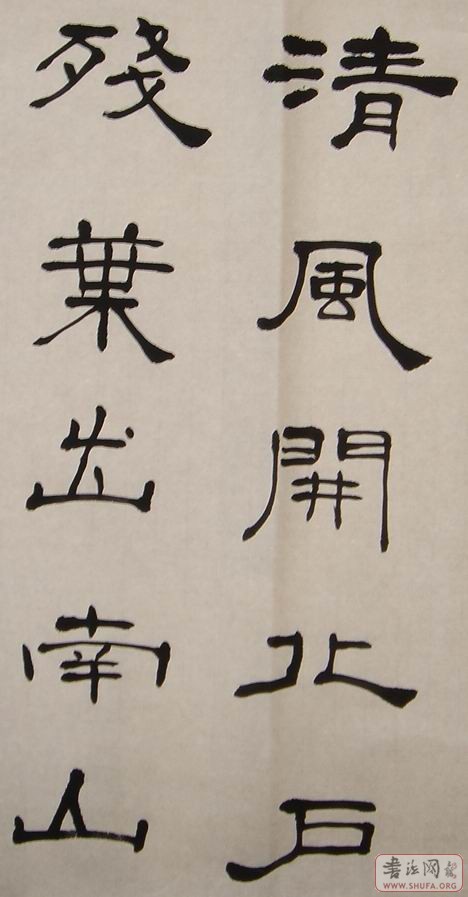 清風開北戶
殘葉出南山
书法网
WWW.SHUFA.ORG